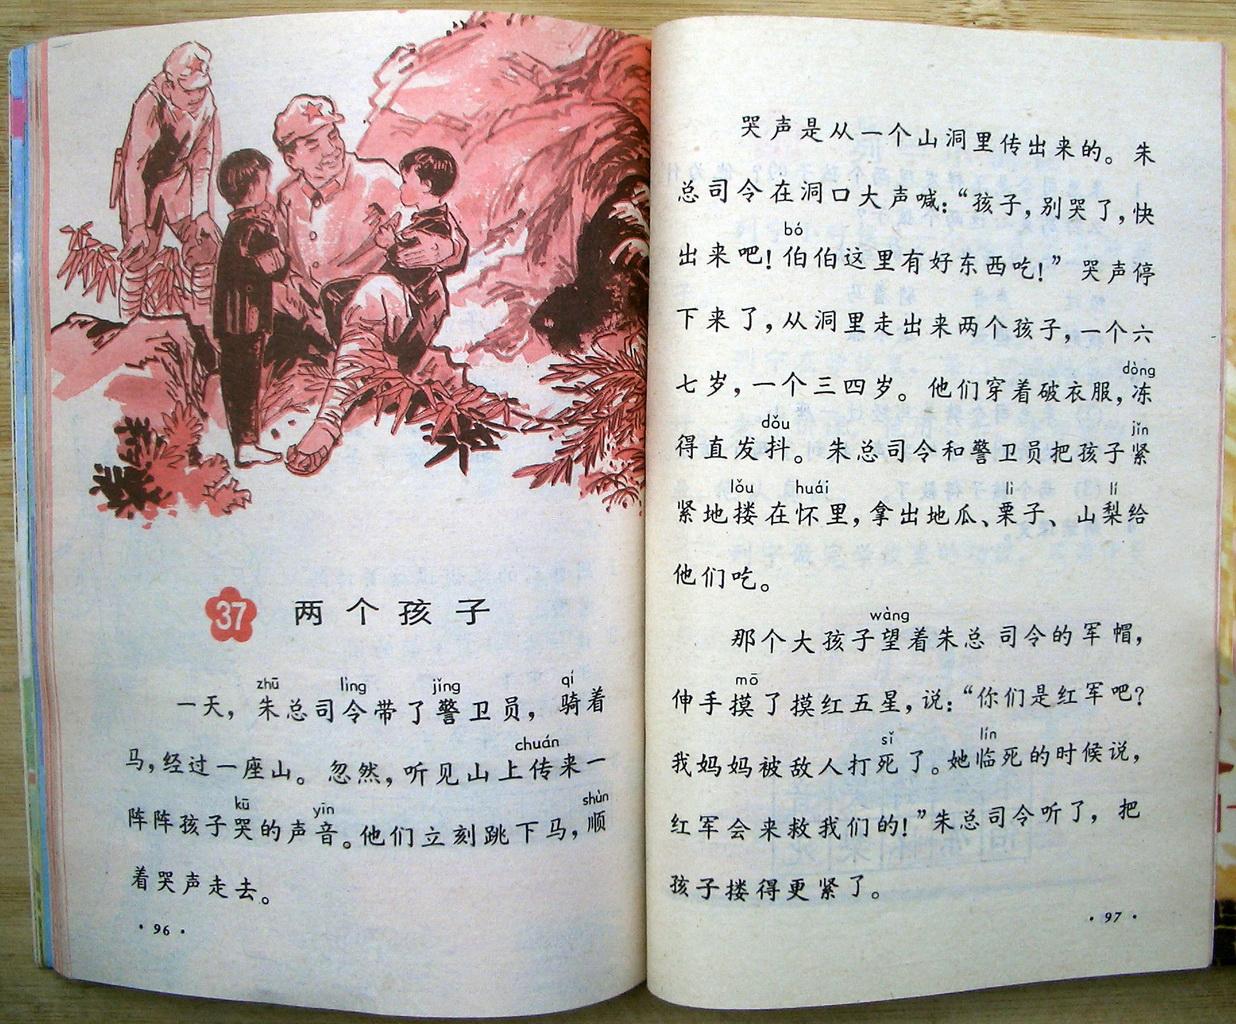 37 两个孩子
zhū lìng jǐng qí
一天，朱总司令带了警卫员，骑着
chuán
马，经过一座山。忽然，听见山上传来一
kū yīn shùn
阵阵孩子哭的声音。他们立刻跳下马，顺
着哭声走去。
· 96 ·
哭声是从一个山洞里传出来的。朱
总司令在洞口大声喊：“孩子，别哭了，快
bó
出来吧！伯伯这里有好东西吃！”哭声停
下来了，从洞里走出来两个孩子，一个六
dòng
七岁，一个三四岁。他们穿着破衣服，冻
dǒu jǐn
得直发抖。朱总司令和警卫员把孩子紧
lǒu huái lì lí
紧地搂在怀里，拿出地瓜、栗子、山梨给
他们吃。
wàng
那个大孩子望着朱总司令的军帽，
mō
伸手摸了摸红五星，说：“你们是红军吧？
sǐ lín
我妈妈被敌人打死了。她临死的时候说，
红军会来救我们的！”朱总司令听了，把
孩子搂得更紧了。
· 97 ·